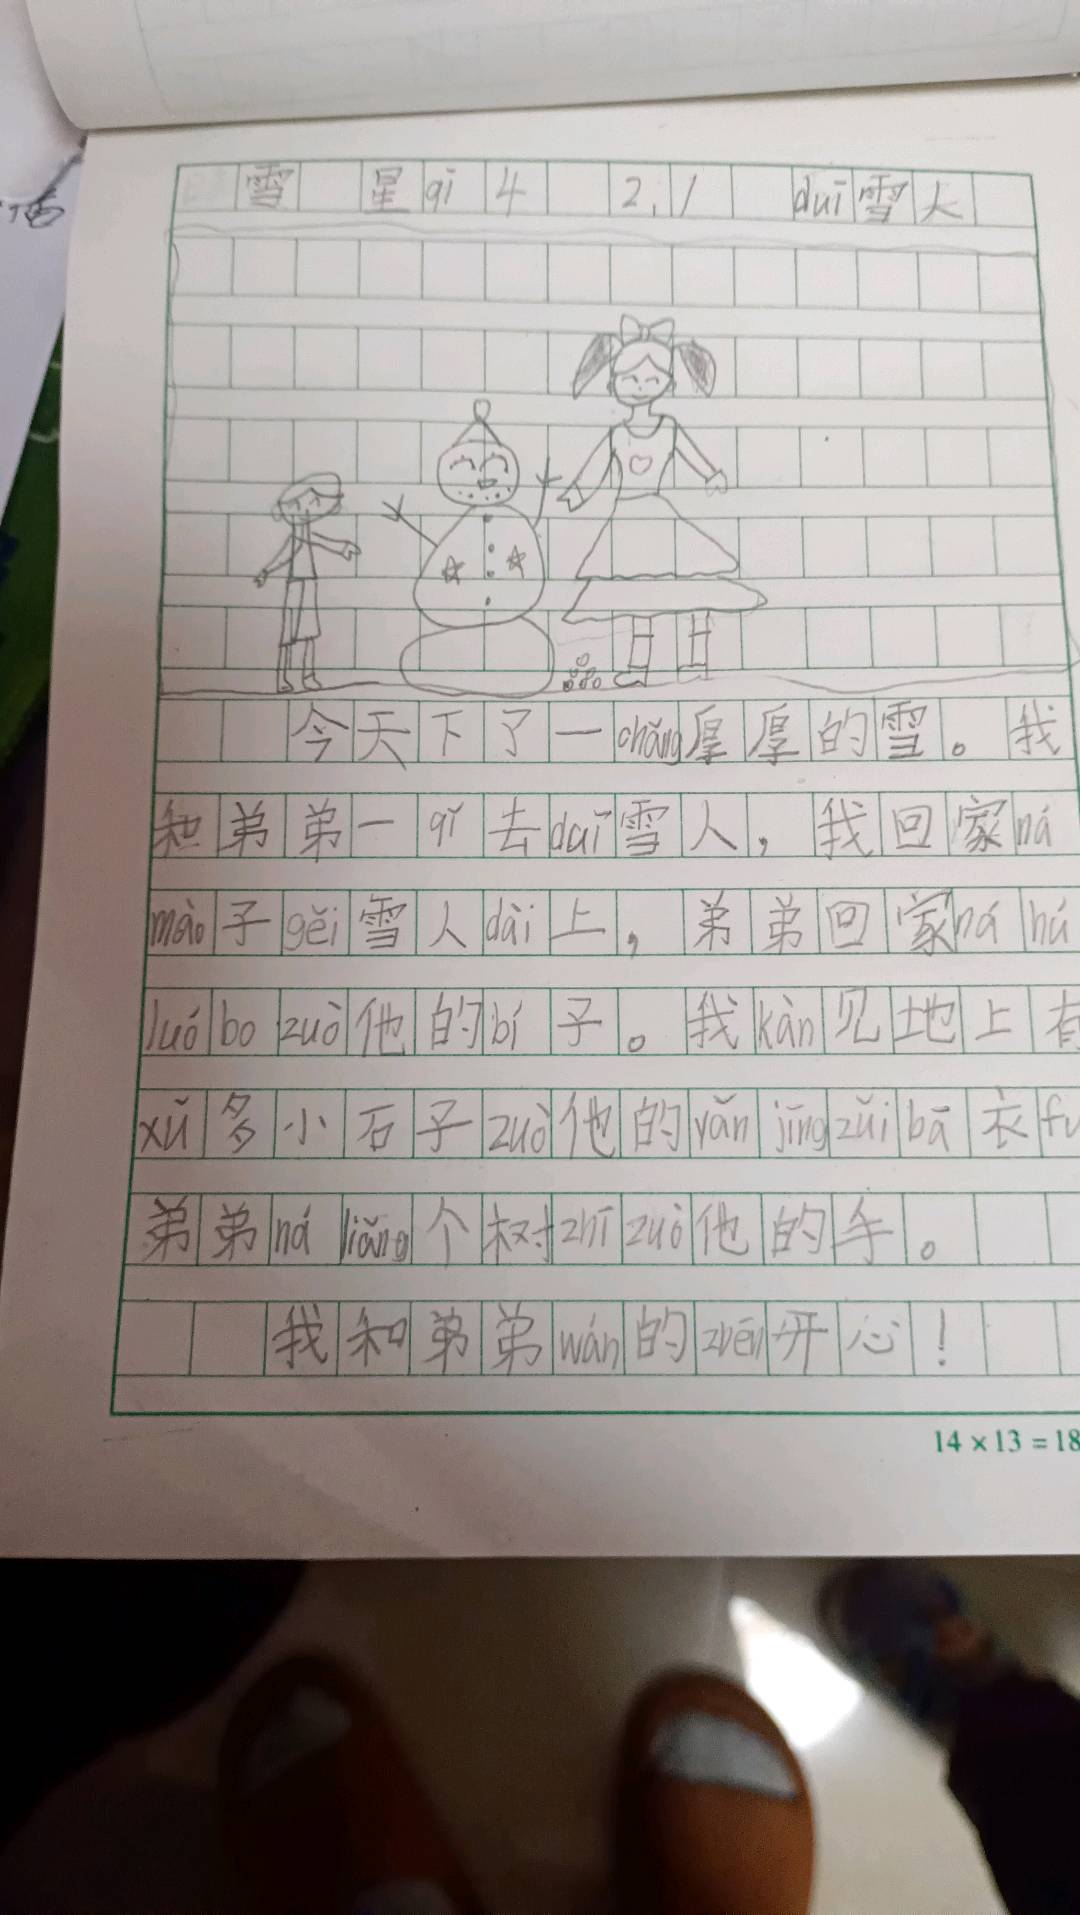 雪 星qī 4 2.1 duī雪人
今天下了一chǎng厚厚的雪。我
和弟弟一qǐ去duī雪人，我回家ná
mào子gěi雪人dài上，弟弟回家ná hú
luó bo zuò他的bí子。我kàn见地上有
xǔ多小石子zuò他的yǎn jīng zuǐ bā衣fu
弟弟ná liǎng个树zhī zuò他的手。
我和弟弟wán的zhēn开心！
14×13=18